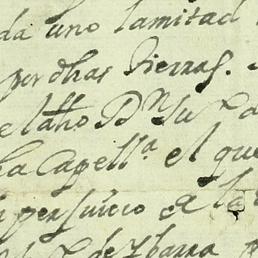 da uno lamitad
por dhas tierras.
el dho Dn Ju
ha Capella el que
perjuicio a la
de Ybarra